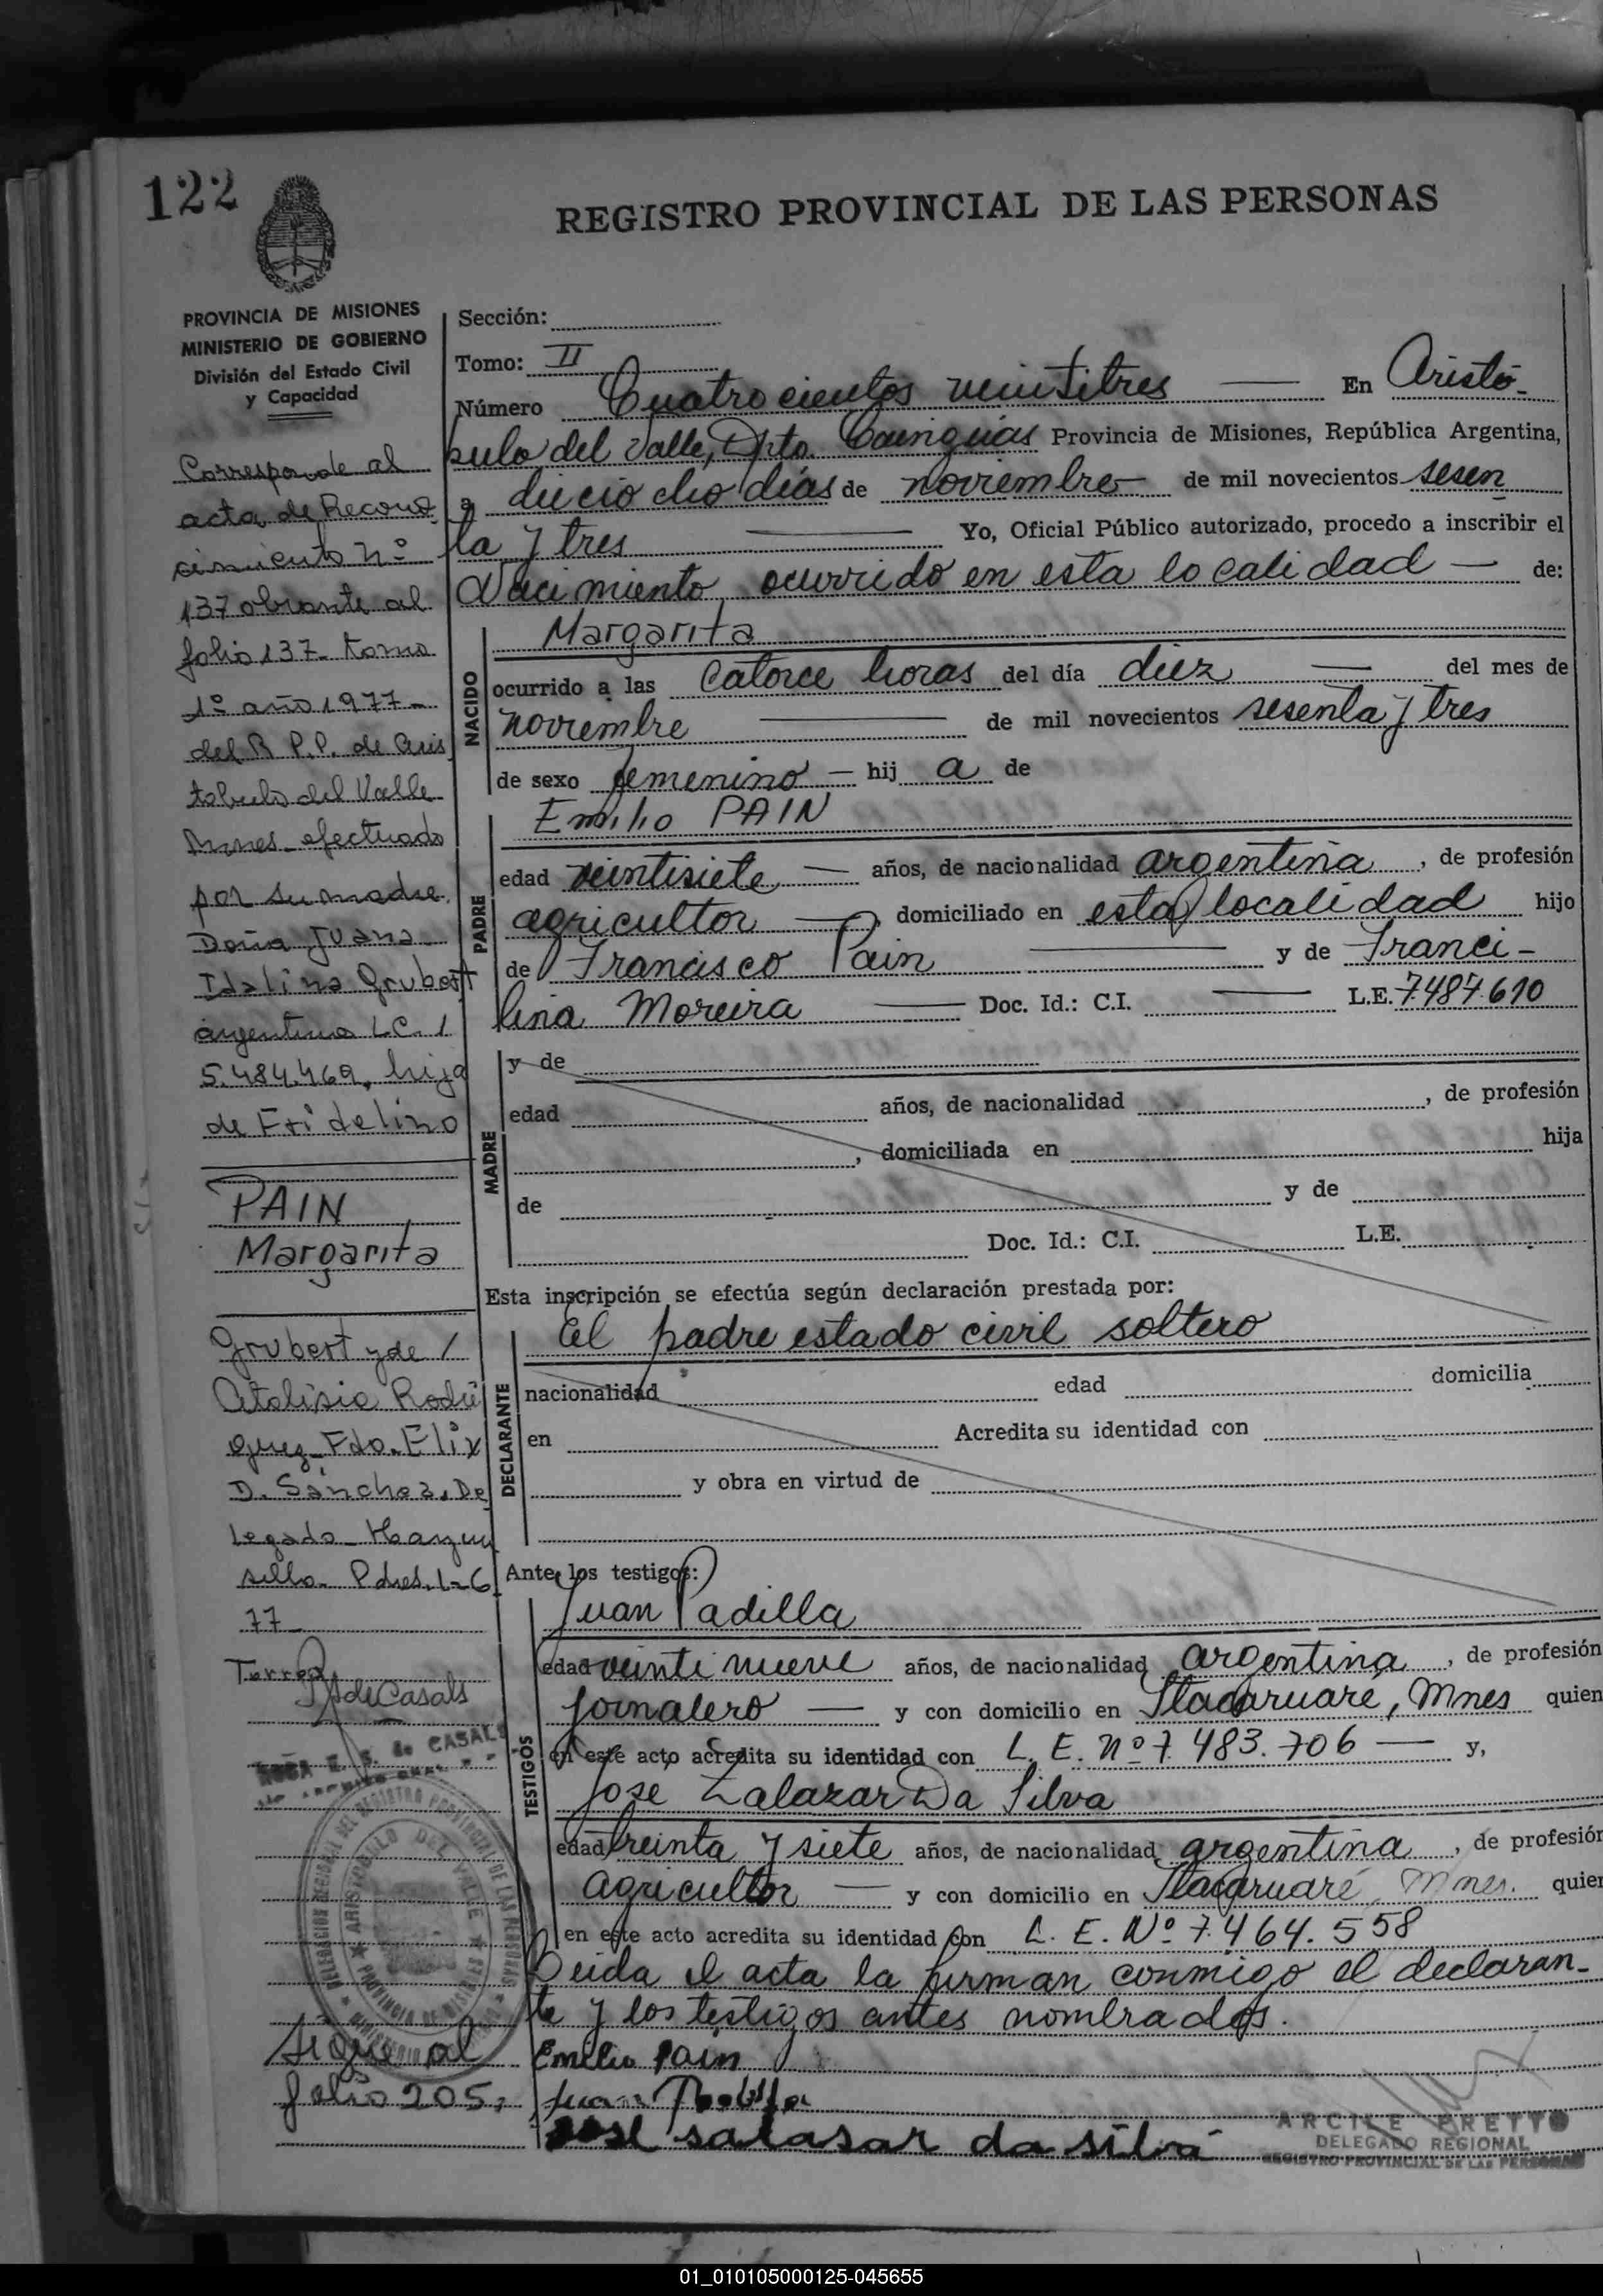 122
REGISTRO PROVINCIAL DE LAS PERSONAS
PROVINCIA DE MISIONES
MINISTERIO DE GOBIERNO
División del Estado Civil
y Capacidad
Corresponde al
acta de Recono
cimiento nº
137 obrante al
folio 137- tomo
1º año 1977-
del R P.P. de Aris
tobulo del Valle
Mnes_ efectuado
por su madre.
Doña Juana
Idalina Grubert
argentina L.C. 1
5.484.469, hija
de Fridelino
PAIN
Margarita
Grubert y de /
Atalisia Rodri
guez_ Fdo. Elix
D. Sánchez. De
legado_ Hay un
sello_ Pdas. 1-6
77_
de Casals
ROSA E. S. de CASALS
sigue al
folio 205,
Sección:
Tomo: II
Número Cuatrocientos veintitres — En Aristó-
bulo del Valle, Dpto. Cainguás Provincia de Misiones, República Argentina,
a dieciocho días de noviembre de mil novecientos sesen
ta y tres — Yo, Oficial Público autorizado, procedo a inscribir el
Nacimiento, ocurrido en esta localidad — de:
NACIDO
Margarita
ocurrido a las catorce horas del día diez — del mes de
noviembre — de mil novecientos sesenta y tres
de sexo femenino — hij a de
PADRE
Emilio PAIN
edad veintisiete — años, de nacionalidad argentina, de profesión
agricultor — , domiciliado en esta localidad hijo
de Francisco Pain — y de Franci-
lina Moreira — Doc. Id.: C.I. — L.E. 7.487.610
MADRE
y de
edad años, de nacionalidad , de profesión
, domiciliada en hija
de y de
Doc. Id.: C.I. L.E.
Esta inscripción se efectúa según declaración prestada por:
DECLARANTE
El padre estado civil soltero
nacionalidad edad domicilia
en Acredita su identidad con
y obra en virtud de
Ante los testigos:
TESTIGOS
Juan Padilla
edad veintinueve años, de nacionalidad argentina, de profesión
jornalero — y con domicilio en Itacaruaré, Mnes quien
en este acto acredita su identidad con L. E. Nº 7.483.706 — y,
Jose Zalazar Da Silva
edad treinta y siete años, de nacionalidad argentina, de profesión
agricultor — y con domicilio en Itacaruaré Mnes. quien
en este acto acredita su identidad con L. E. Nº 7.464.558
Leida el acta la firman conmigo el declaran-
te y los testigos antes nombrados.
Emilio Pain
Juan Padilla
Jose salasar da silva
ARCILE PRETTO
DELEGADO REGIONAL
REGISTRO PROVINCIAL DE LAS PERSONAS
01_010105000125-045655